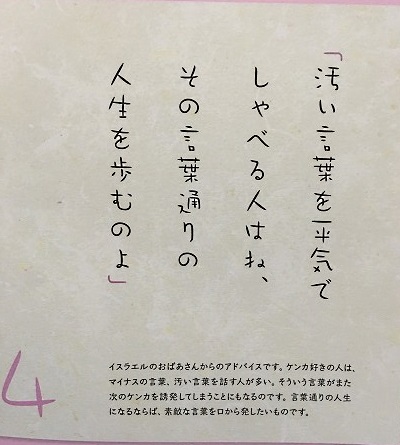 「汚い言葉を平気で
しゃべる人はね、
その言葉通りの
人生を歩むのよ」
イスラエルのおばあさんからのアドバイスです。ケンカ好きの人は、
マイナスの言葉、汚い言葉を話す人が多い。そういう言葉がまた
次のケンカを誘発してしまうことにもなるのです。言葉通りの人生
になるならば、素敵な言葉を口から発したいものです。
4